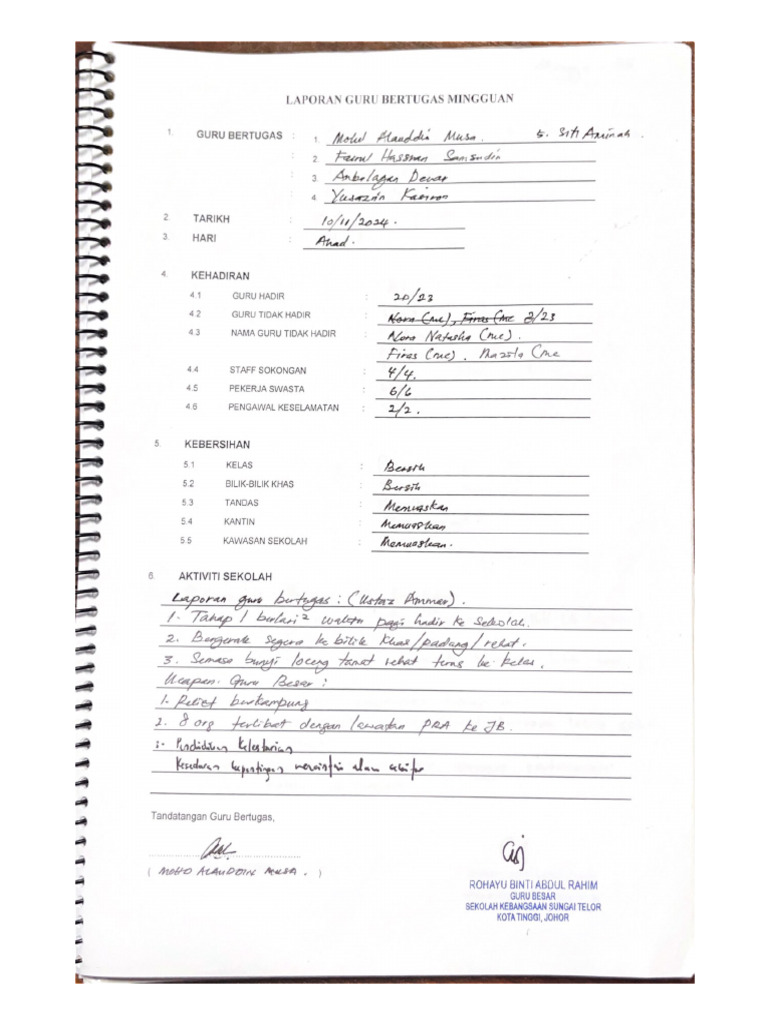 LAPORAN GURU BERTUGAS MINGGUAN
1. GURU BERTUGAS : 1. Mohd Alauddin Musa. 5. Siti Aminah
: 2. Fairul Hassnan Samsudin
: 3. Anbalagan Devar
: 4. Yusaznin
2. TARIKH : 10/11/2024.
3. HARI : Ahad.
4. KEHADIRAN
4.1 GURU HADIR : 20/23
4.2 GURU TIDAK HADIR : Nora (mc), Firas (mc 3/23
4.3 NAMA GURU TIDAK HADIR : Nora Natasha (mc).
Firas (mc). Mazila (mc
4.4 STAFF SOKONGAN : 4/4.
4.5 PEKERJA SWASTA : 6/6
4.6 PENGAWAL KESELAMATAN : 2/2.
5. KEBERSIHAN
5.1 KELAS : Bersih
5.2 BILIK-BILIK KHAS : Bersih
5.3 TANDAS : Memuaskan
5.4 KANTIN : Memuaskan
5.5 KAWASAN SEKOLAH : Memuaskan.
6. AKTIVITI SEKOLAH
Laporan guru bertugas : (Ustaz Ammar).
1. Tahap 1 berlari² waktu pagi hadir ke sekolah.
2. Bergerak segera ke bilik khas/padang/rehat.
3. Semasa bunyi loceng tamat rehat terus ke kelas.
Ucapan Guru Besar :
1. Relief berkampung
2. 8 org terlibat dengan lawatan PRA ke JB.
3. Pendidikan Kelestarian
Kesedaran kepentingan mencintai alam sekitar
Tandatangan Guru Bertugas,
( MOHD ALAUDDIN MUSA. )
ROHAYU BINTI ABDUL RAHIM
GURU BESAR
SEKOLAH KEBANGSAAN SUNGAI TELOR
KOTA TINGGI, JOHOR